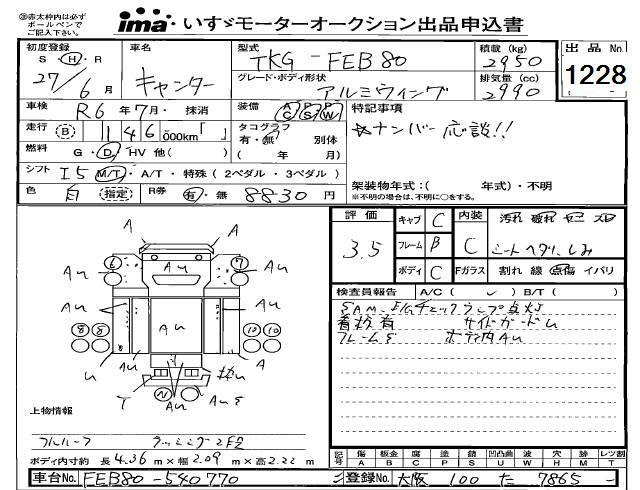 ㊟赤太枠内は必ず
ボールペンで
ご記入下さい。
ima いすゞモーターオークション出品申込書
初度登録 車名 型式 積載 (kg) 出品 No.
S H R キャンター TKG-FEB80 2950
27/6月 グレード・ボディ形状 排気量 (cc) 1228
アルミウィング 2990
車検 R6年7月・抹消 装備 AC PS PW 特記事項
走行 B 146,000km「 」 タコグラフ ☆ナンバー応談!!
有・無 別体
燃料 G・D・HV 他( ) ( 年 月)
シフト I5 M/T・A/T・特殊(2ペダル・3ペダル) 架装物年式:( 年式)・不明
色 白 指定 R券 有・無 8830円 ※不明の場合は、不明に○をする。
評価 キャブ C 内装 汚れ 破れ ヤニ スレ
3.5 フレーム B C シートヘタリ、しみ
ボディ C Fガラス 割れ 線 点傷 イバリ
検査員報告 A/C( ✓ ) B/T( )
SAM.E/Gチェックランプ点灯
看板有 サイドガードU
フレームS ボディ内AU
A A
6 Au Au 7 Au
Au Au Au
8 8 10 10
U Au A
T N Au S
上物情報
フルルーフ ラッシング2段
ボディ内寸約 長 4.36 m×幅 2.09 m×高 2.22 m
記号 傷 A 板金 B 腐 C 塗 P 錆 S 凹凸曲 U 波 W 穴 H 跡 M レツ割 T
車台No. FEB80-540770 登録No. 大阪 100 た 7865